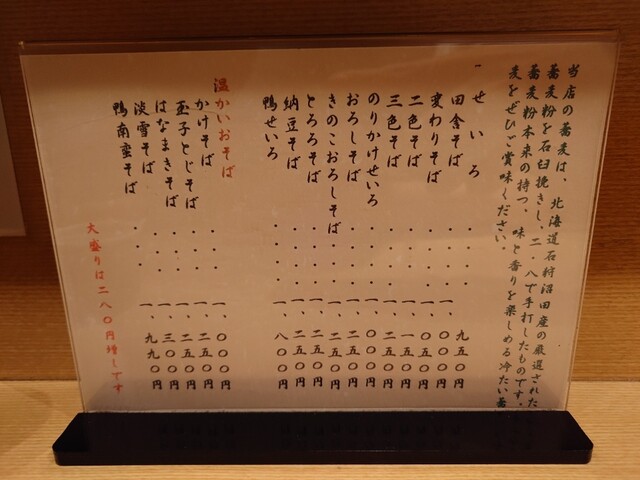 当店の蕎麦は、北海道石狩沼田産の厳選された
蕎麦粉を石臼挽きし、二・八で手打したものです。
蕎麦粉本来の持つ、味と香りを楽しめる冷たい蕎
麦をぜひご賞味ください。
せいろ・・・・九五〇円
田舎そば・・・・一、〇〇〇円
変わりそば・・・・一、〇五〇円
二色そば・・・・一、一五〇円
三色そば・・・・一、二五〇円
のりかけせいろ・・・・一、〇〇〇円
おろしそば・・・・一、二五〇円
きのこおろしそば・・・一、二五〇円
とろろそば・・・・一、二五〇円
納豆そば・・・・一、二五〇円
鴨せいろ・・・・一、八〇〇円
温かいおそば
かけそば・・・・一、〇〇〇円
玉子とじそば・・・・一、二五〇円
はなまきそば・・・・一、二五〇円
淡雪そば・・・・一、三〇〇円
鴨南蛮そば・・・・一、九九〇円
大盛りは二八〇円増しです